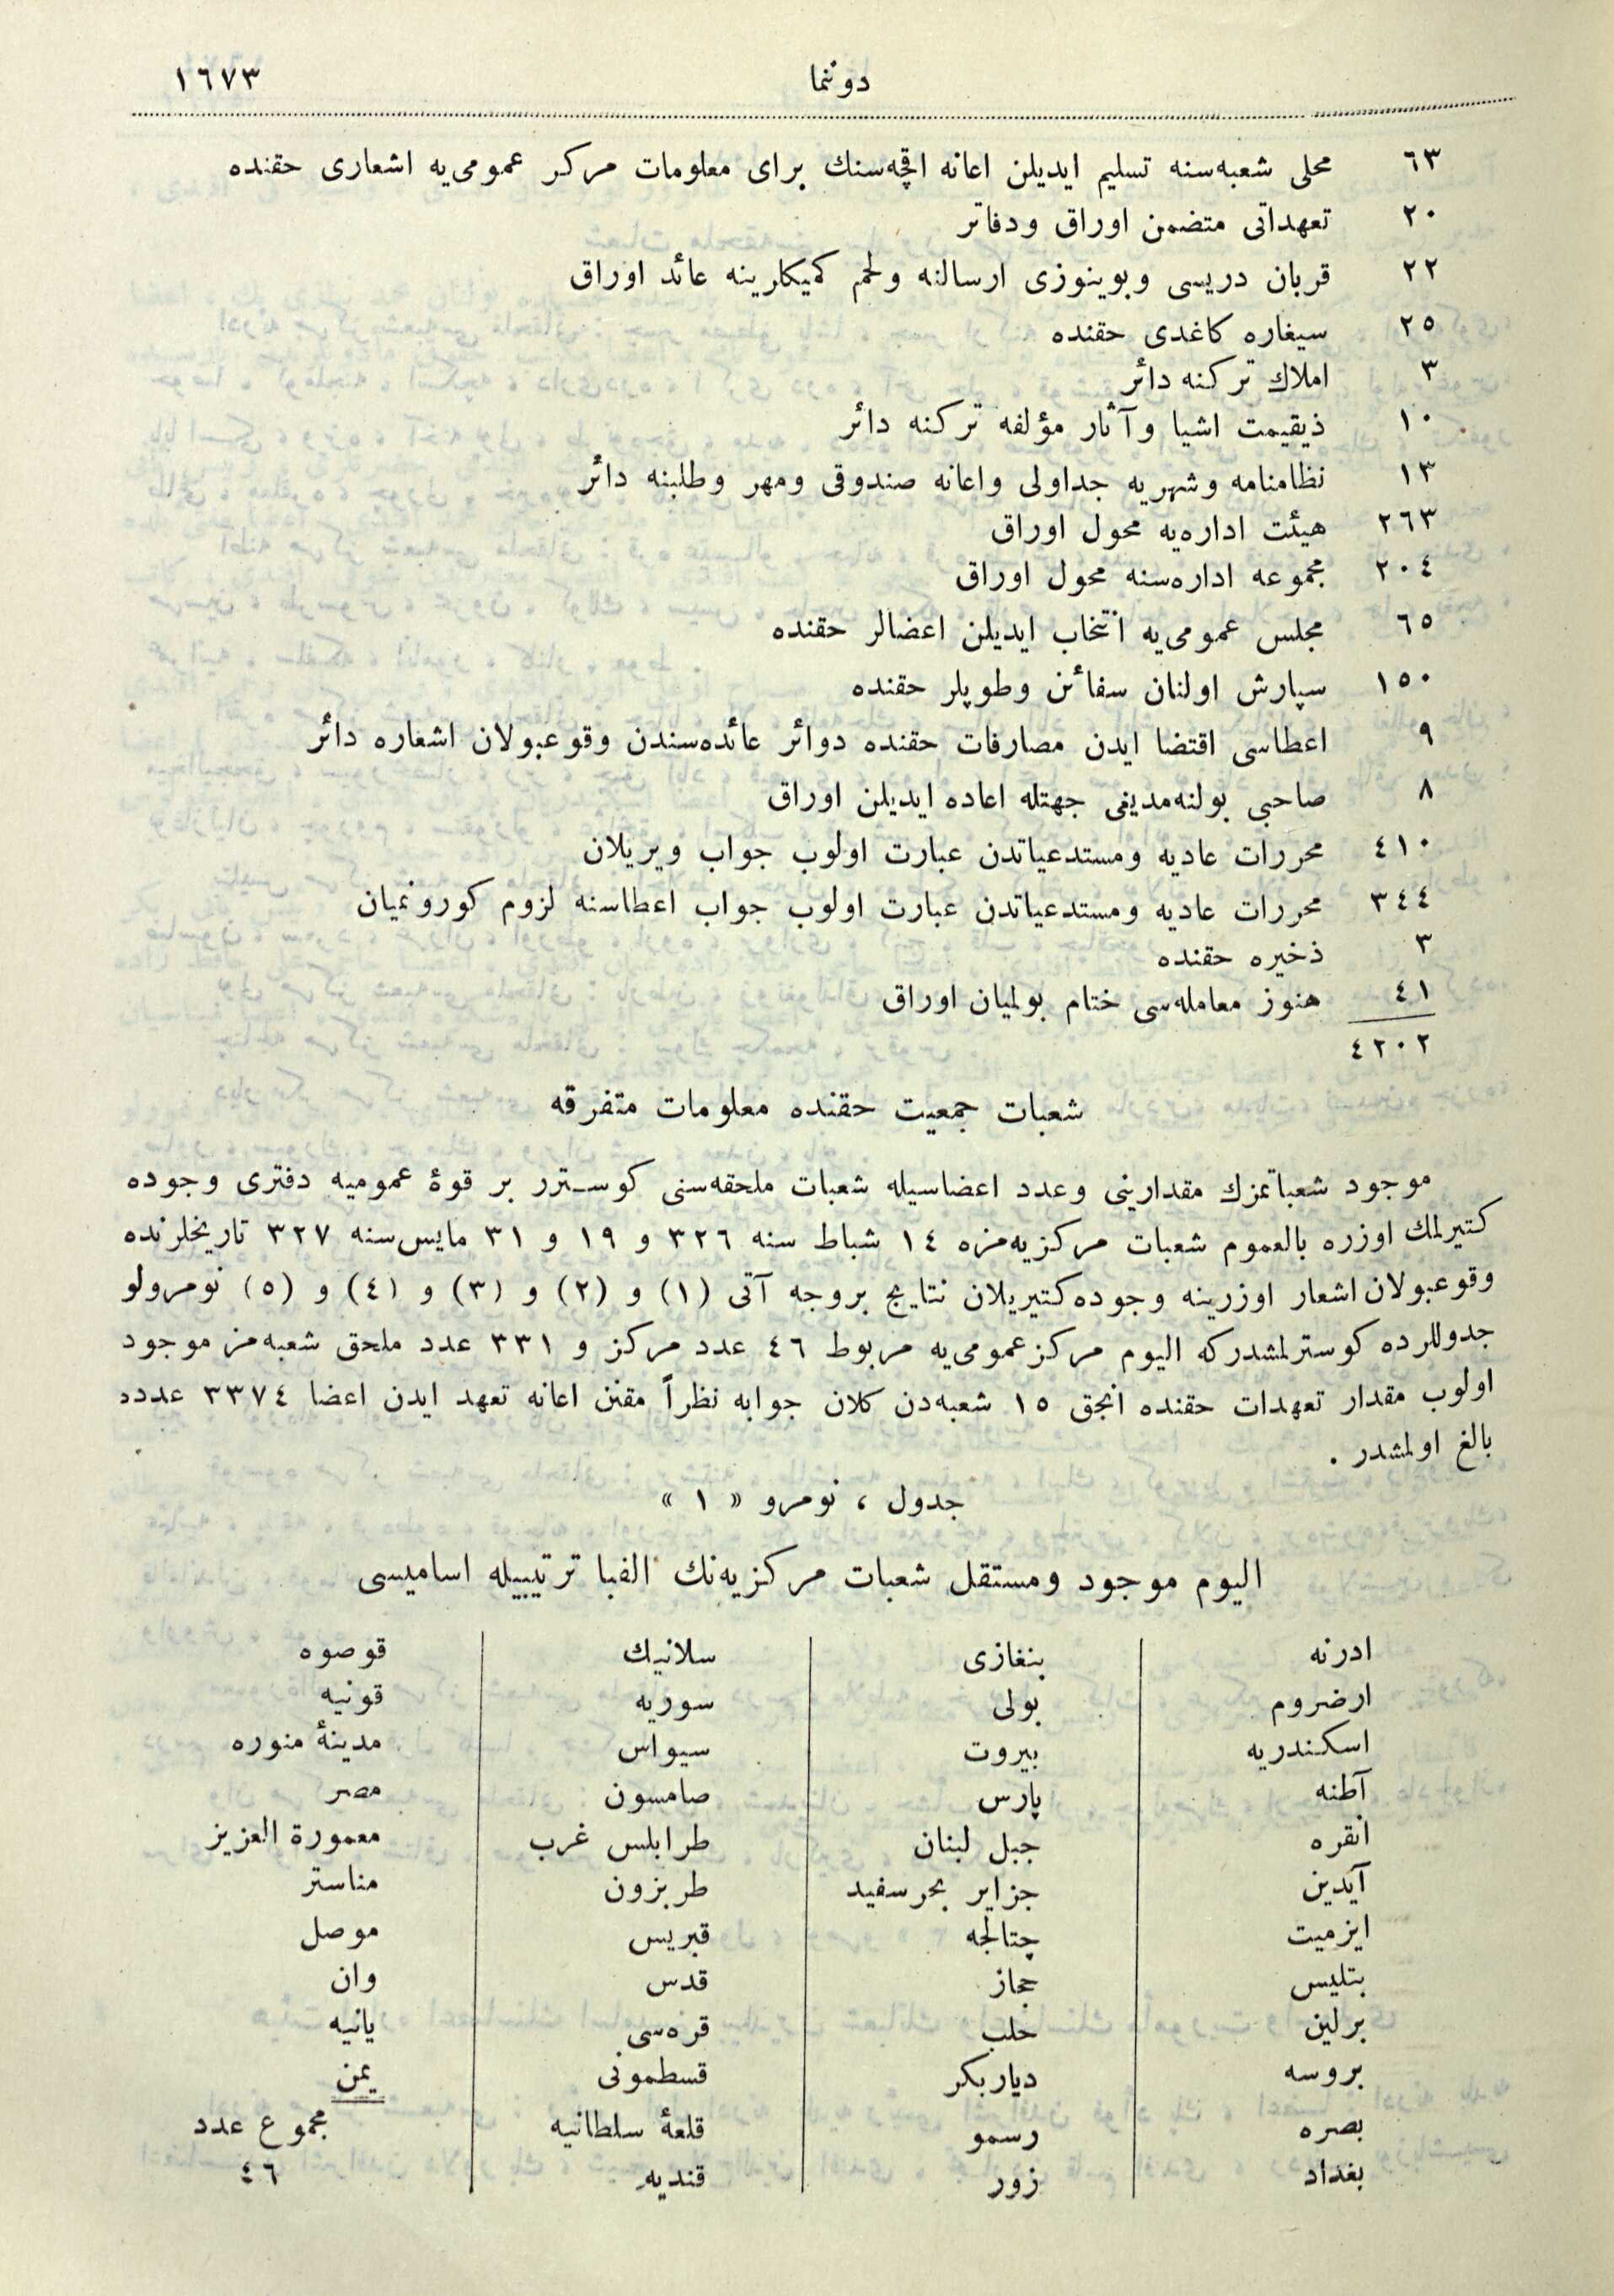 دوننما ١٦٧٣
٦٣ محلى شعبه‌سنه تسليم ايديلن اعانه اقچه‌سنك براى معلومات مركز عمومى‌يه اشعارى حقنده
٢٠ تعهداتى متضمن اوراق ودفاتر
٢٢ قربان دريسى وبوينوزى ارسالنه ولحم كميكلرينه عائد اوراق
٢٥ سيغاره كاغدى حقنده
٣ املاك تركنه دائر
١٠ ذيقيمت اشيا وآثار مؤلفه تركنه دائر
١٣ نظامنامه وشهريه جداولى واعانه صندوقى ومهر وطلبنه دائر
٢٦٣ هيئت اداره‌يه محول اوراق
٢٠٤ مجموعه اداره‌سنه محول اوراق
٦٥ مجلس عمومى‌يه انتخاب ايديلن اعضالر حقنده
١٥٠ سپارش اولنان سفائن وطوپلر حقنده
٩ اعطاسى اقتضا ايدن مصارفات حقنده دوائر عائده‌سندن وقوعبولان اشعاره دائر
٨ صاحبى بولنه‌مديغى جهتله اعاده ايديلن اوراق
٤١٠ محررات عاديه ومستدعياتدن عبارت اولوب جواب ويريلان
٣٤٤ محررات عاديه ومستدعياتدن عبارت اولوب جواب اعطاسنه لزوم كورونميان
٣ ذخيره حقنده
٤١ هنوز معامله‌سى ختام بولميان اوراق
٤٢٠٢
شعبات جمعيت حقنده معلومات متفرقه
موجود شعباتمزك مقدارينى وعدد اعضاسيله شعبات ملحقه‌سنى كوسترر بر قوۀ عموميه دفترى وجوده
كتيرلمك اوزره بالعموم شعبات مركزيه‌مزه ١٤ شباط سنه ٣٢٦ و ١٩ و ٣١ مايس سنه ٣٢٧ تاريخلرنده
وقوعبولان اشعار اوزرينه وجوده كتيريلان نتايج بروجه آتى (١) و (٢) و (٣) و (٤) و (٥) نومرولو
جدوللرده كوسترلمشدركه اليوم مركز عمومى‌يه مربوط ٤٦ عدد مركز و ٣٣١ عدد ملحق شعبه‌مز موجود
اولوب مقدار تعهدات حقنده انجق ١٥ شعبه‌دن كلان جوابه نظراً مقنن اعانه تعهد ايدن اعضا ٣٣٧٤ عدده
بالغ اولمشدر .
جدول ، نومرو « ١ »
اليوم موجود ومستقل شعبات مركزيه‌نك الفبا ترتيبيله اساميسى
ادرنه بنغازى سلانيك قوصوه
ارضروم بولى سوريه قونيه
اسكندريه بيروت سيواس مدينۀ منوره
آطنه پارس صامسون مصر
انقره جبل لبنان طرابلس غرب معمورة العزيز
آيدين جزاير بحرسفيد طربزون مناستر
ايزميت چتالجه قبريس موصل
بتليس حجاز قدس وان
برلين حلب قره‌سى يانيه
بروسه دياربكر قسطمونى يمن
بصره رسمو قلعۀ سلطانيه مجموع عدد
بغداد زور قنديه ٤٦